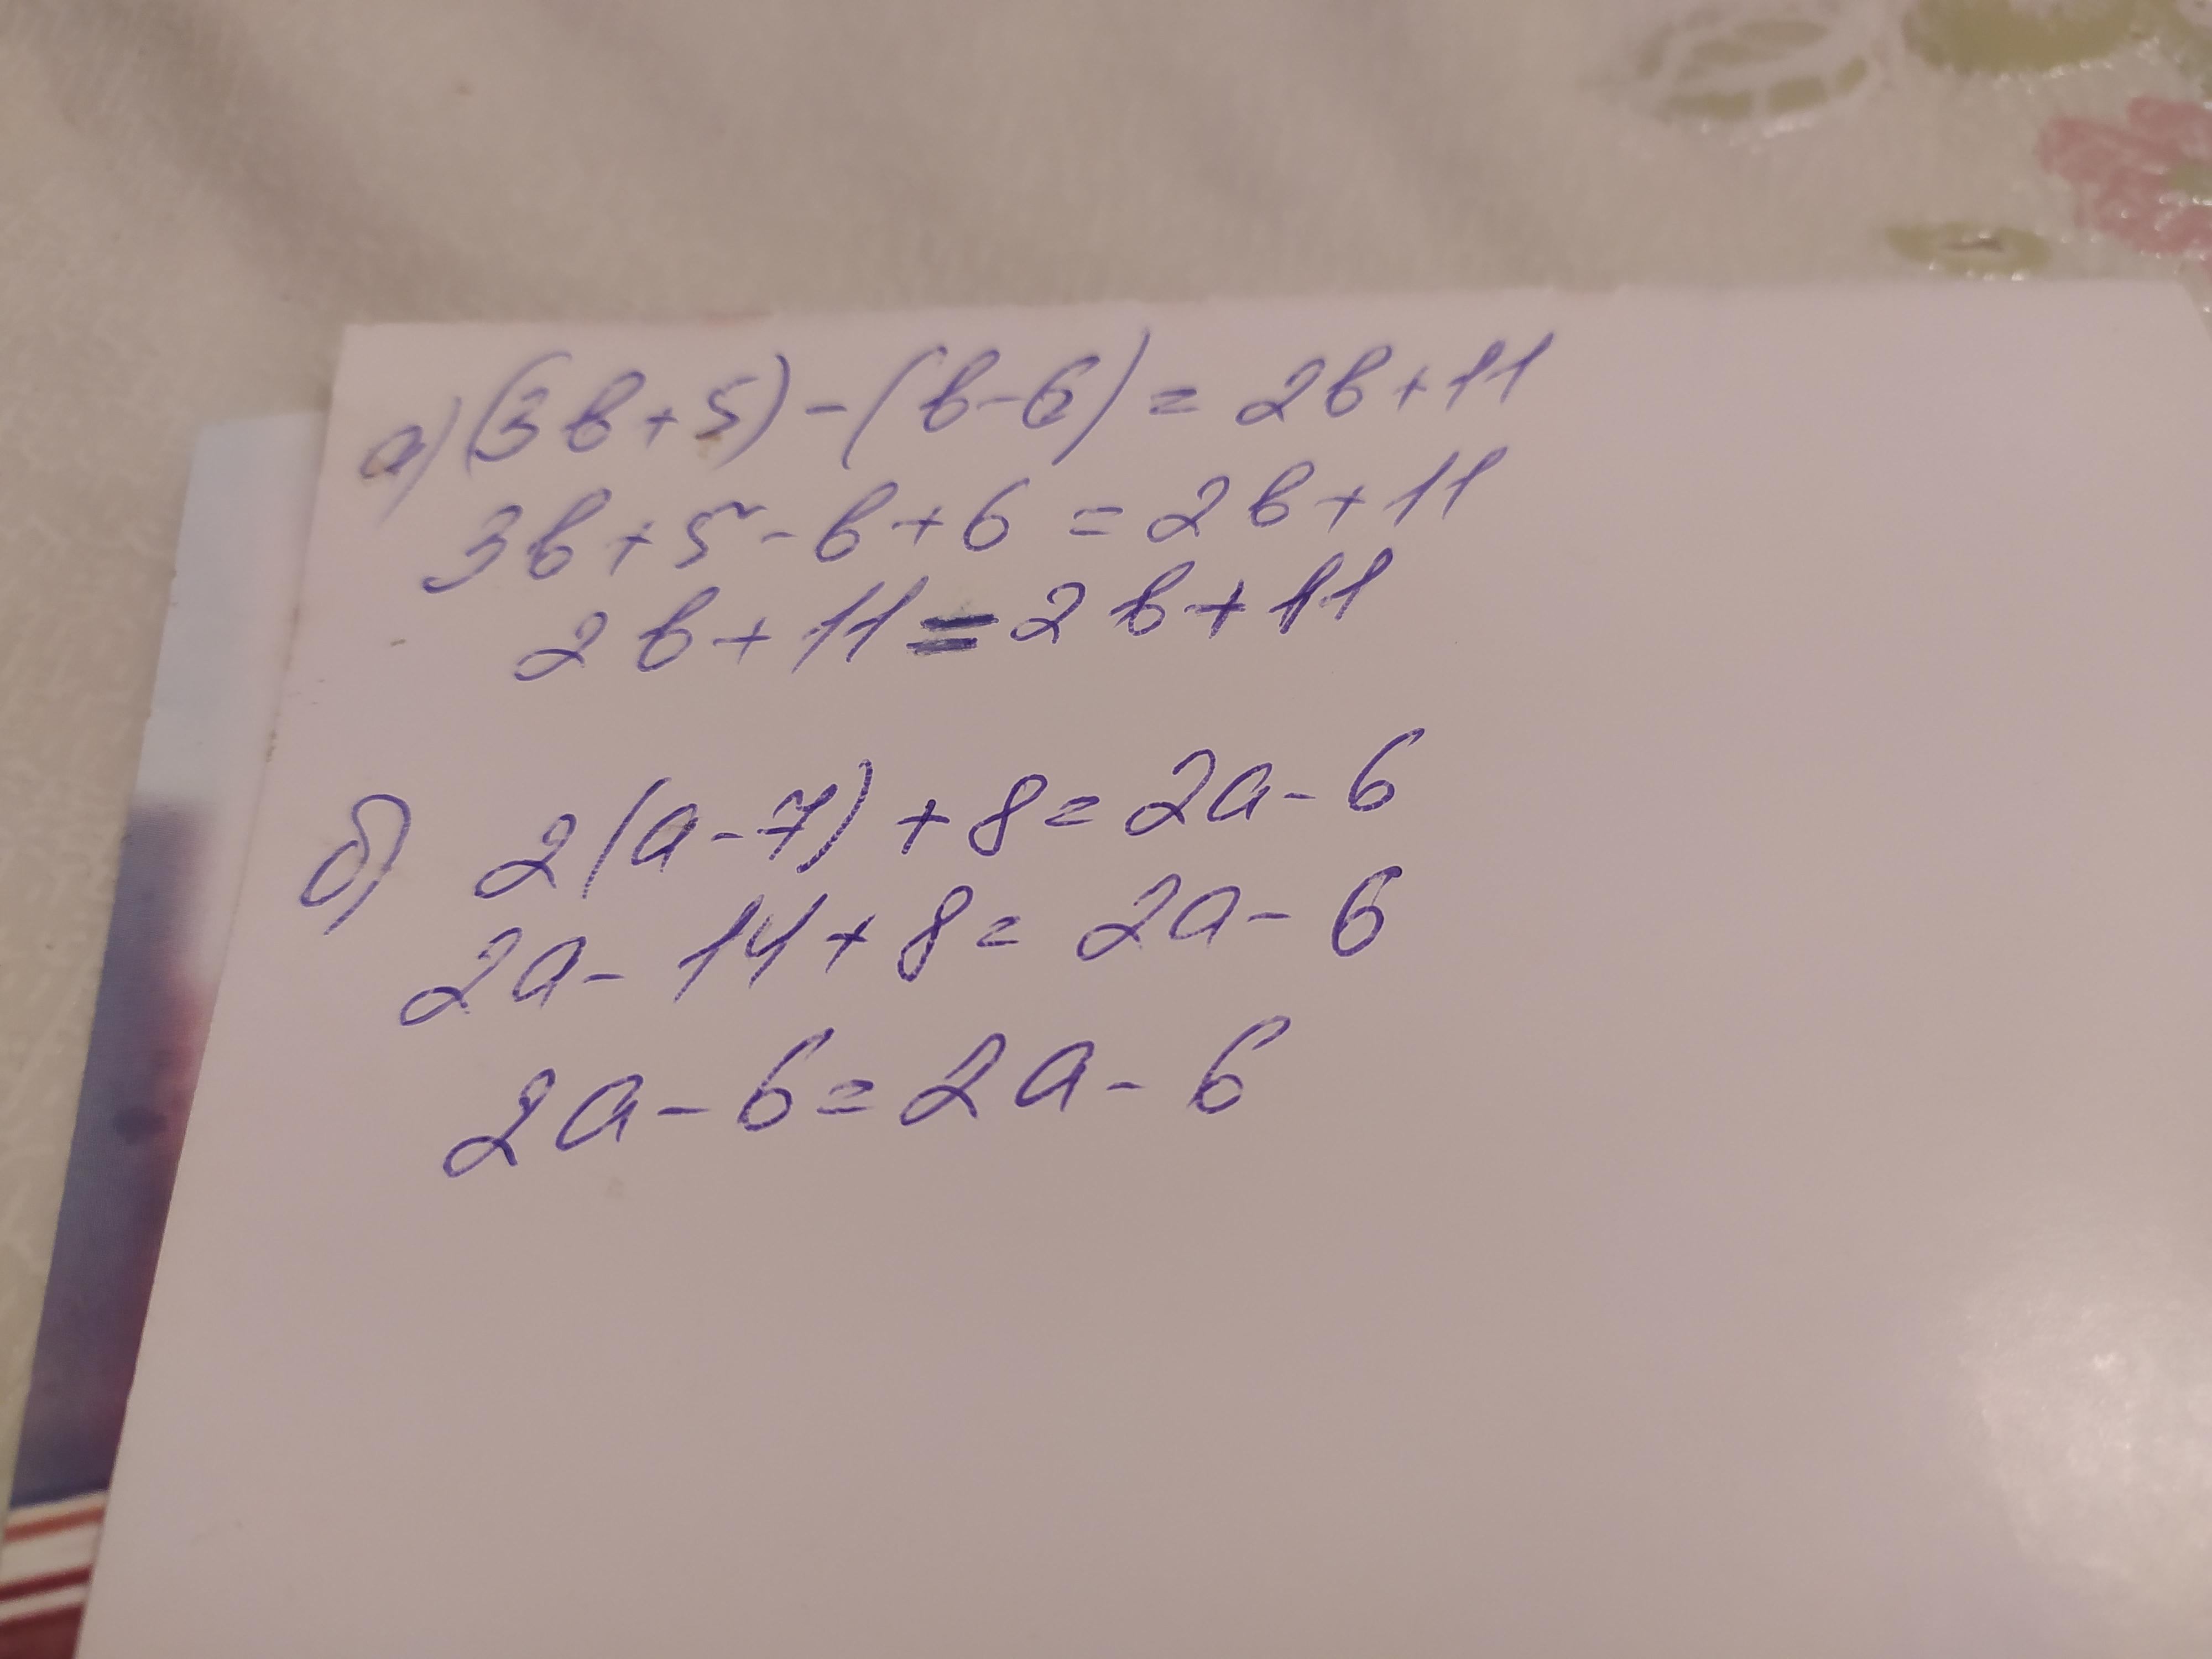 а) (3b+5)-(b-6)=2b+11
3b+5-b+6=2b+11
2b+11=2b+11
б) 2(a-7)+8=2a-6
2a-14+8=2a-6
2a-6=2a-6